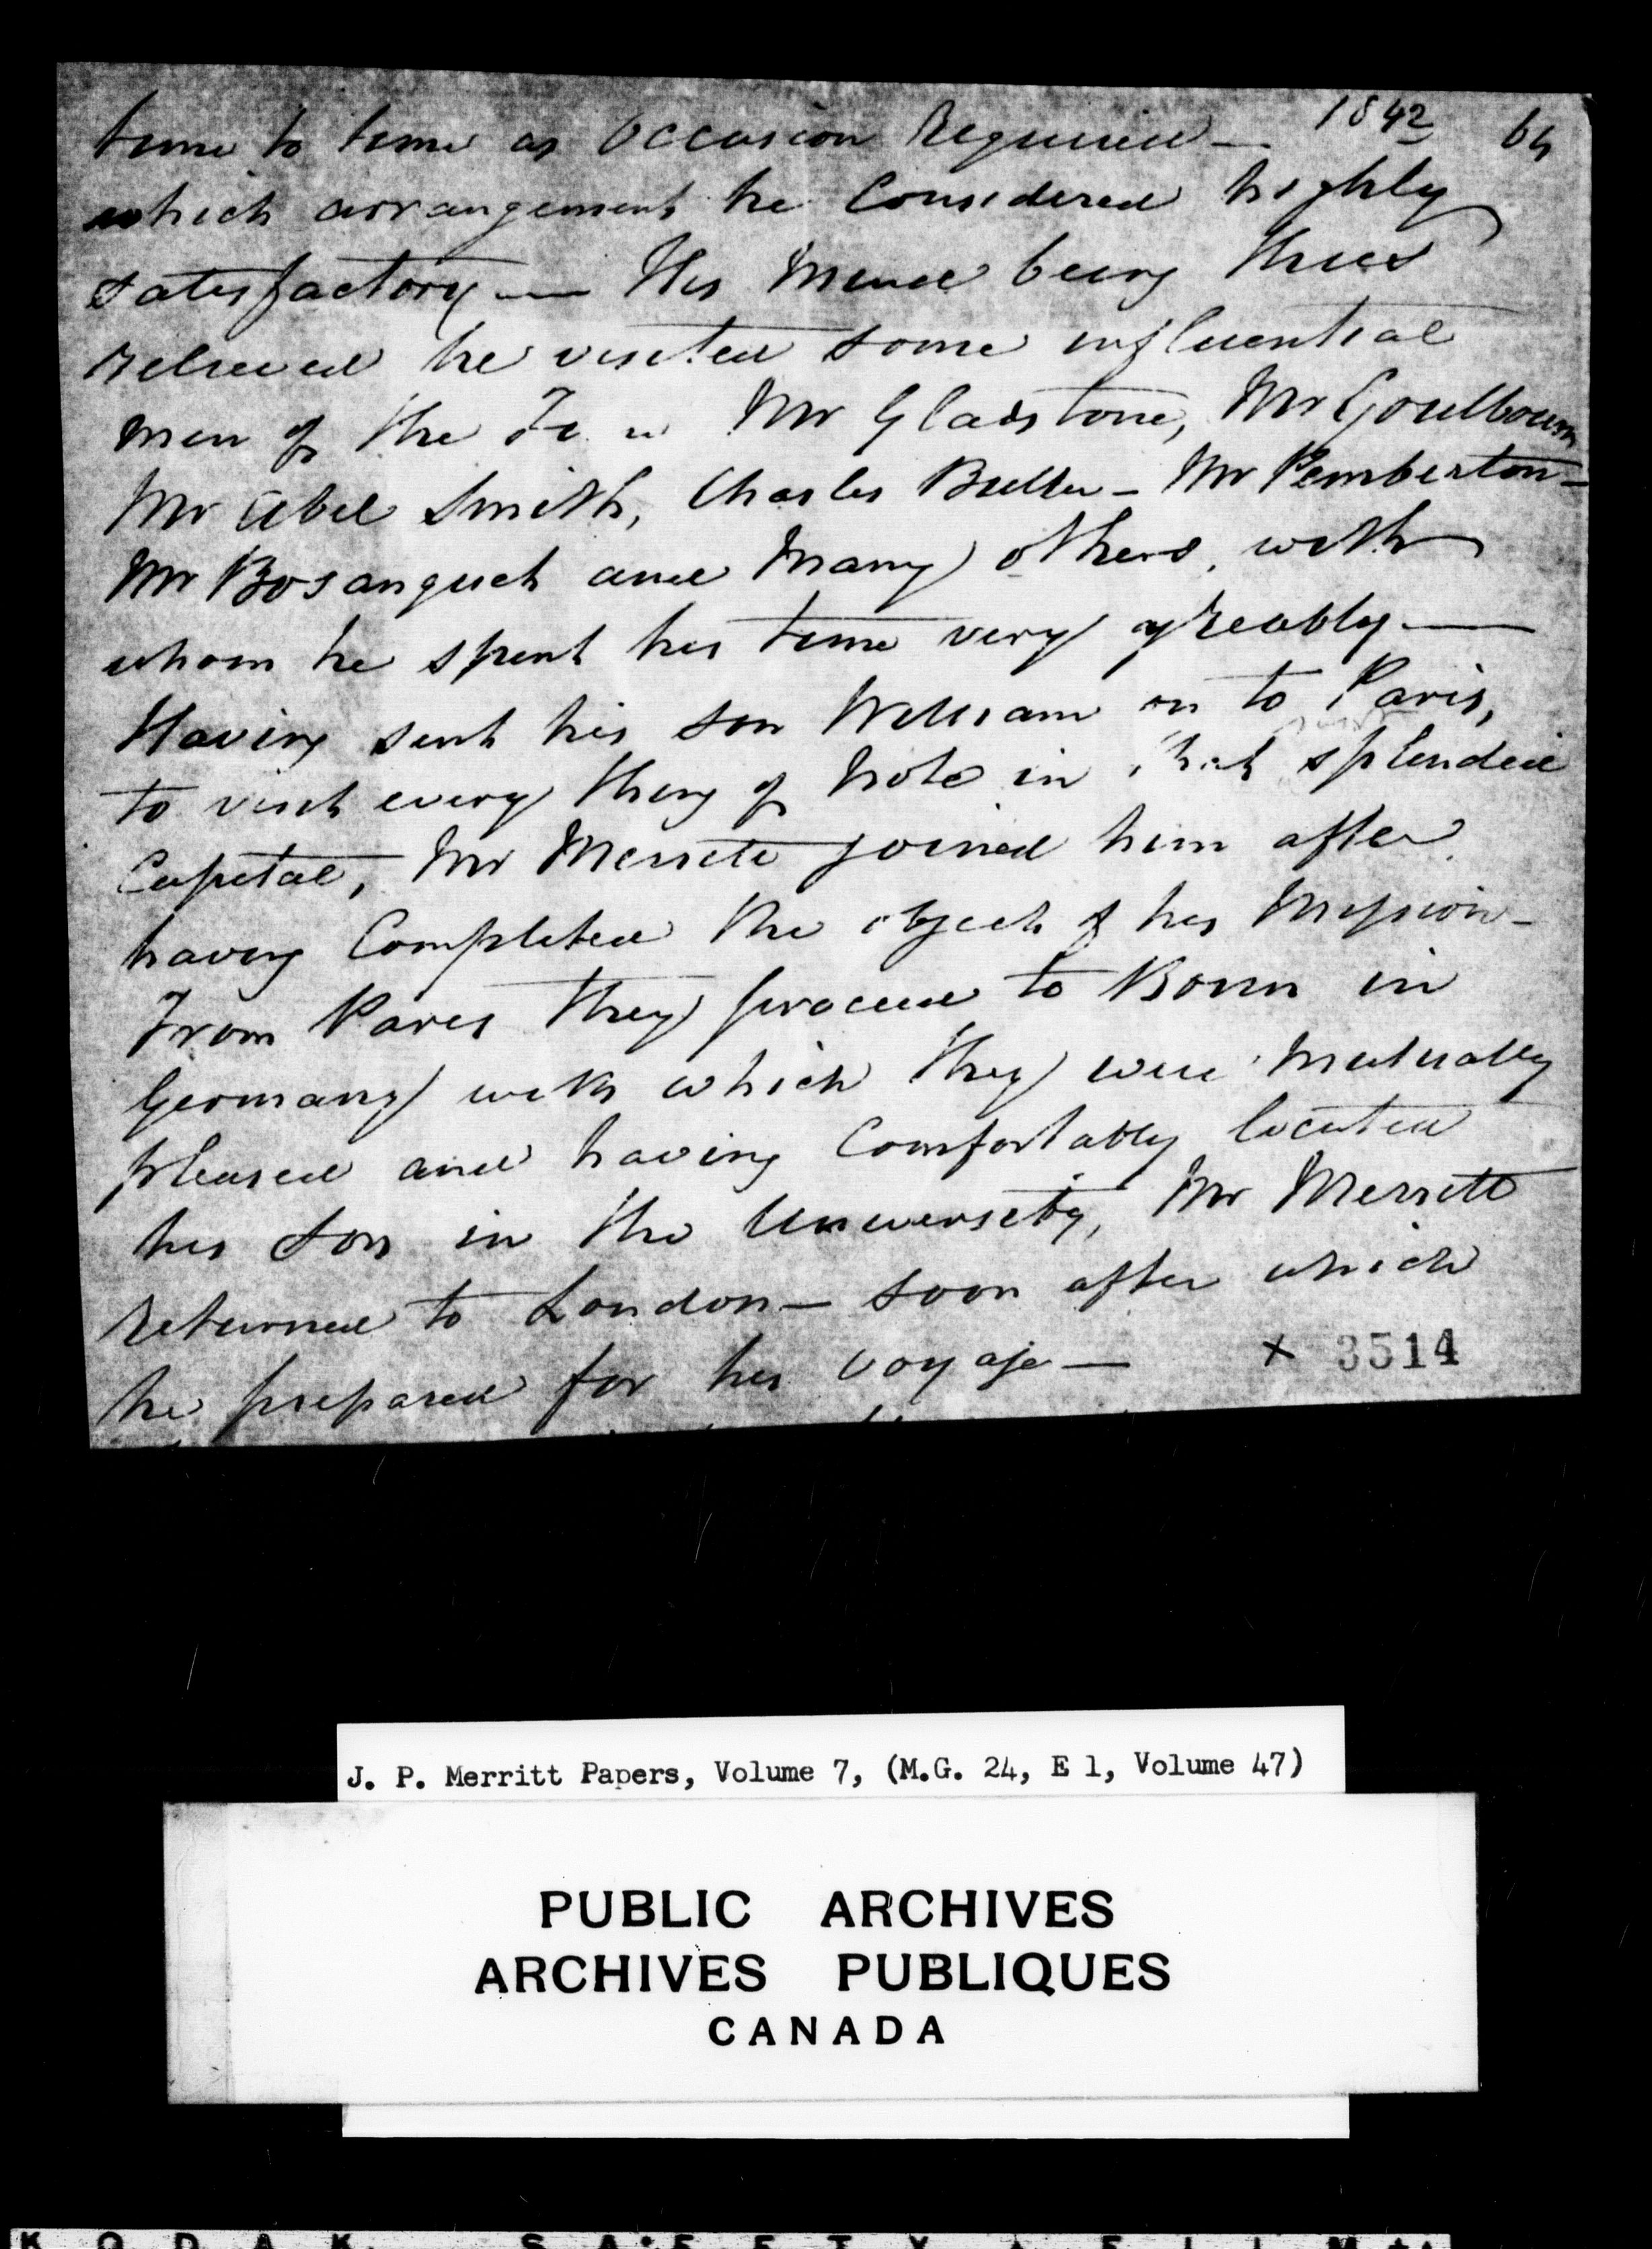 1842 64
time to time as Occasion Required —
which arrangement he Considered highly
satisfactory — His Mind being thus
relieved he visited some influential
men of the Mr Gladstone, Mr Goulbourn
Mr Abel Smith, Charles Buller – Mr Pemberton –
Mr Bosanquet and Many others, with
whom he spent his time very agreably —
Having sent his son William on to Paris,
to visit every thing of Note in that splendid
Capital, Mr Merritt joined him after
having Completed the object of his Mission –
From Paris they proceed to Bonn in
Germany with which they were Mutually
pleased and having Comfortably located
his son in the University, Mr Merritt
Returned to London – soon after which
he prepared for his voyage —
x 3514
J. P. Merritt Papers, Volume 7, (M.G. 24, E 1, Volume 47)
PUBLIC ARCHIVES
ARCHIVES PUBLIQUES
CANADA
KODAK SAFETY FILM